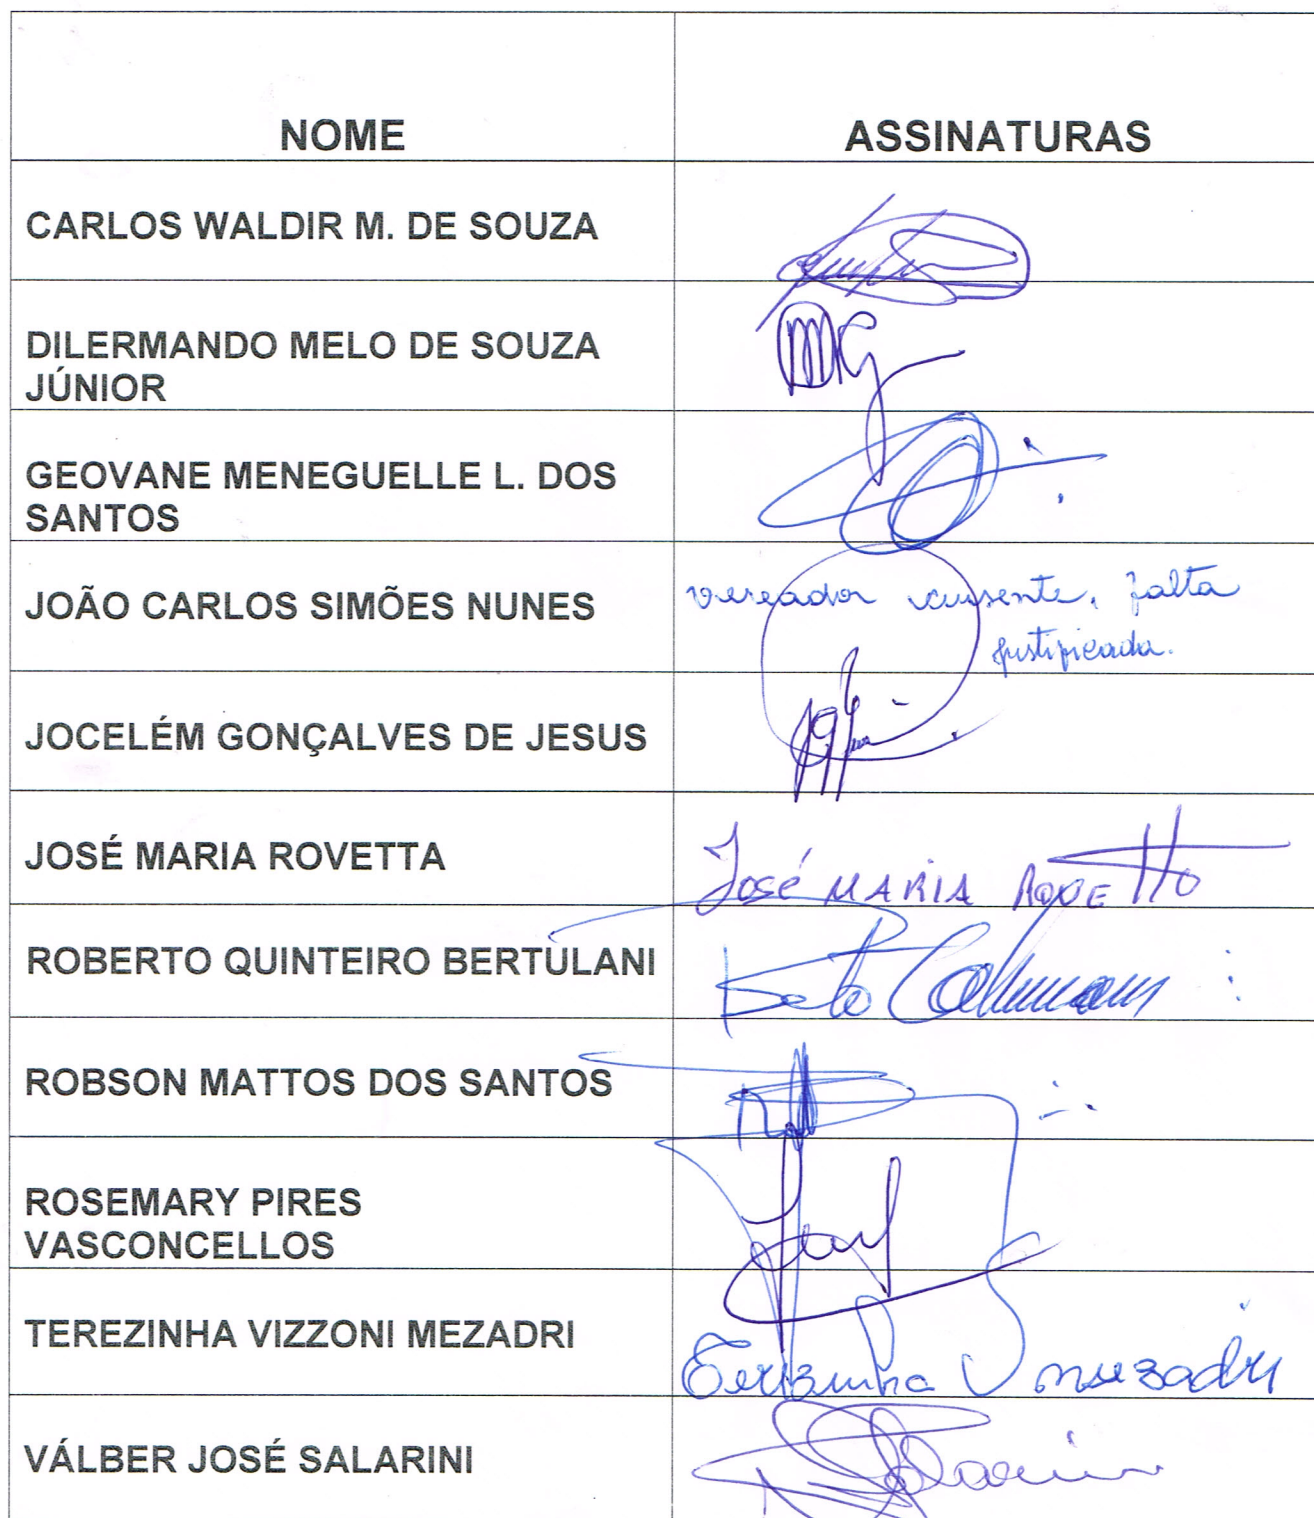 NOME
ASSINATURAS
CARLOS WALDIR M. DE SOUZA
DILERMANDO MELO DE SOUZA
JÚNIOR
GEOVANE MENEGUELLE L. DOS
SANTOS
JOÃO CARLOS SIMÕES NUNES
vereador ausente, falta
justificada.
JOCELÉM GONÇALVES DE JESUS
JOSÉ MARIA ROVETTA
José MARIA ROVETTO
ROBERTO QUINTEIRO BERTULANI
ROBSON MATTOS DOS SANTOS
ROSEMARY PIRES
VASCONCELLOS
TEREZINHA VIZZONI MEZADRI
Terezinha V Mezadri
VÁLBER JOSÉ SALARINI